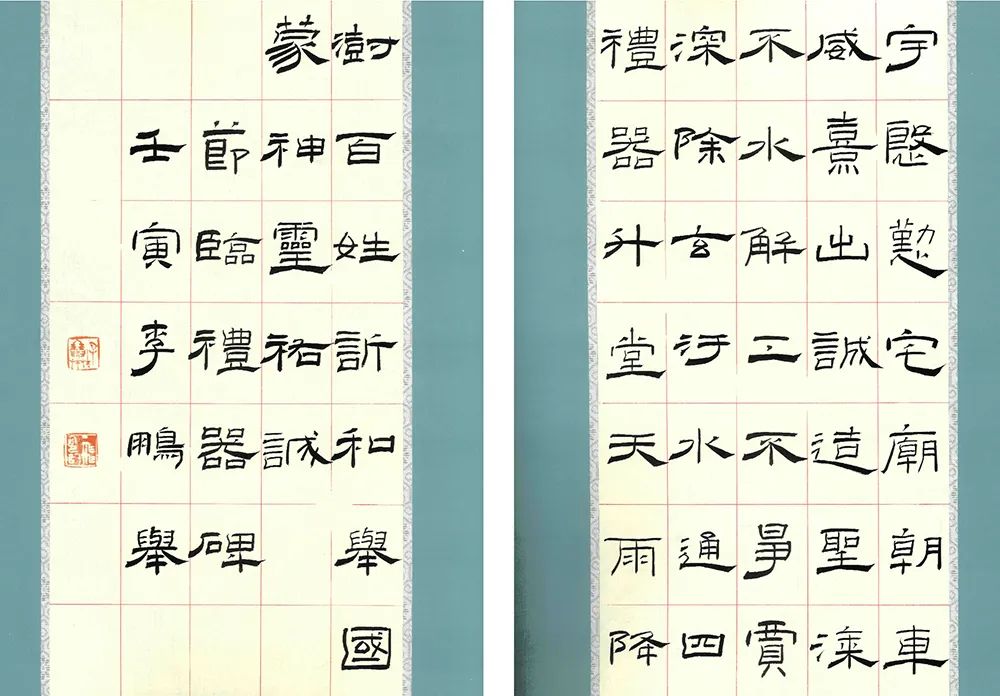 宇慇懃宅廟朝車
威熹出誠造聖漆
不水解工不爭賈
深除玄汙水通四
禮器升堂天雨降
澍百姓訢和舉國
蒙神靈祐誠
節臨禮器碑
壬寅李鵬舉